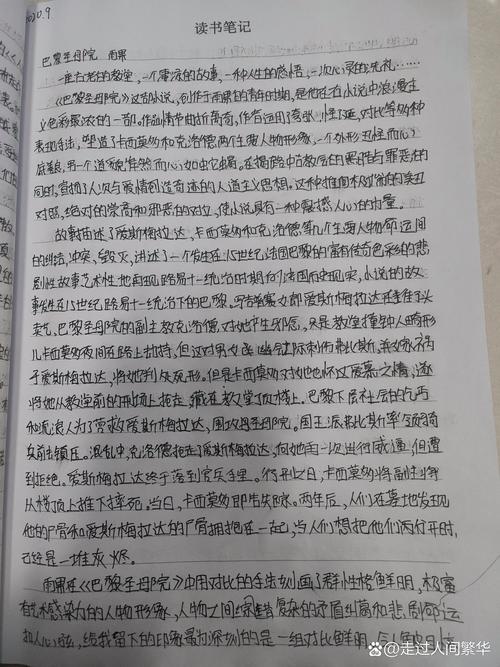 2020.9
读书笔记
巴黎圣母院 雨果
一座古老的教堂，一个凄凉的故事，一种人生的感悟，一次心灵的洗礼……
《巴黎圣母院》这部小说，创作于雨果的青年时期，是他过在小说中浪漫主
义色彩最浓的一部。作品情节曲折离奇，作者运用了夸张、怪诞、对比等多种
表现手法，塑造了卡西莫多和克洛德两个主要人物形象，一个外形丑怪而心
底善良，另一个道貌岸然而心如虫蝎。在揭露中古教会的黑暗与罪恶的
同时，宣扬了人次与爱情创造奇迹的人道主义思想。这种推向极端的美丑
对照，绝对的崇高和邪恶的对立，使小说具有一种震撼人心的力量。
故事描述了爱斯梅拉达，卡西莫多和克洛德等几个主要人物命运间
的纠结，冲突，毁灭，讲述了一个发生在15世纪法国巴黎的富有传奇色彩的悲
剧性故事艺术性地再现路易十一统治时期的法国历史现实，小说的故
事发生在15世纪路易十一统治下的巴黎。爱斯梅拉达在街头
卖艺、巴黎圣母院的副主教克洛德对她产生邪念，只是教堂撞钟人畸形
儿卡西莫多夜间在路上劫持，但这对男女幽会时际刺伤弗比斯，并嫁祸
于爱斯梅拉达，将她判处死刑。但是卡西莫多对她也怀过爱慕之情，逐
将她从教堂前的刑场上抢走，藏在教堂顶楼上。巴黎下层社会的乞丐
和流浪人为了营救爱斯梅拉达，围攻母院。国王派弗比斯率领骑
兵前去镇压。混乱中，克洛德抢走了爱斯梅拉达，向她再一次进行威逼，但遭
到拒绝。爱斯梅拉达终于落到官兵手里。行刑之日，卡西莫多将副主教
从楼顶上推下摔死。当日，卡西莫多即告失踪。两年后，人们在墓地发现
他的尸骨和爱斯梅拉达的尸骨拥抱在一起，当人们想把他们两分开时，
已经是一堆灰烬。
雨果在《巴黎圣母院》中用对比的手法刻画了群性格鲜明，极富
有艺术感染力的人物形象，人物之间复杂的矛盾纠葛和悲剧命运
扣人心弦，给我留下的印象最为深刻的是一组对比鲜明，
@走过人间繁华